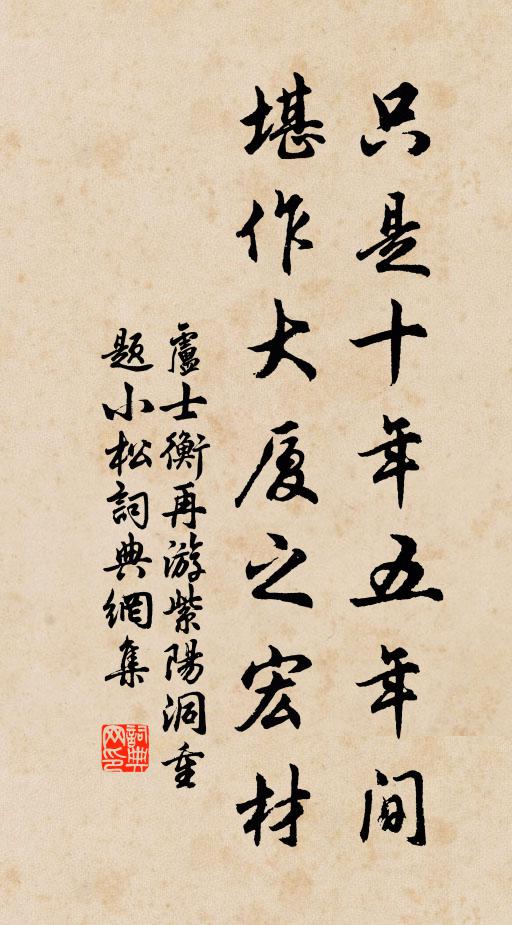 只是十年五年间
堪作大厦之宏材
盧士衡再游紫陽洞重
題小松詞典網集
詞典网印